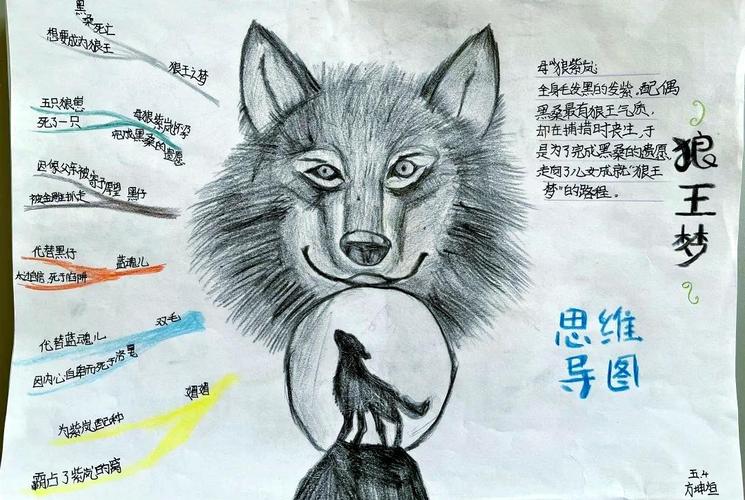 黑桑死亡
想要成为狼王
狼王之梦
五只狼崽
死了一只
母狼紫岚
完成黑桑的遗愿
因像父亲被寄予厚望
黑仔
被金雕扒走
代替黑仔
蓝魂儿
太过自信 死于陷阱
双毛
代替蓝魂儿
因内心自卑而死于
媚媚
为紫岚配种
霸占了紫岚的窝
母狼紫岚
全身毛发黑的发紫。配偶
黑桑最有狼王气质,
却在捕猎时丧生,于
是为了完成黑桑的遗愿,
走向了儿女成就“狼王
梦”的路程。
狼王梦
思维
导图
五.4
方坤垣